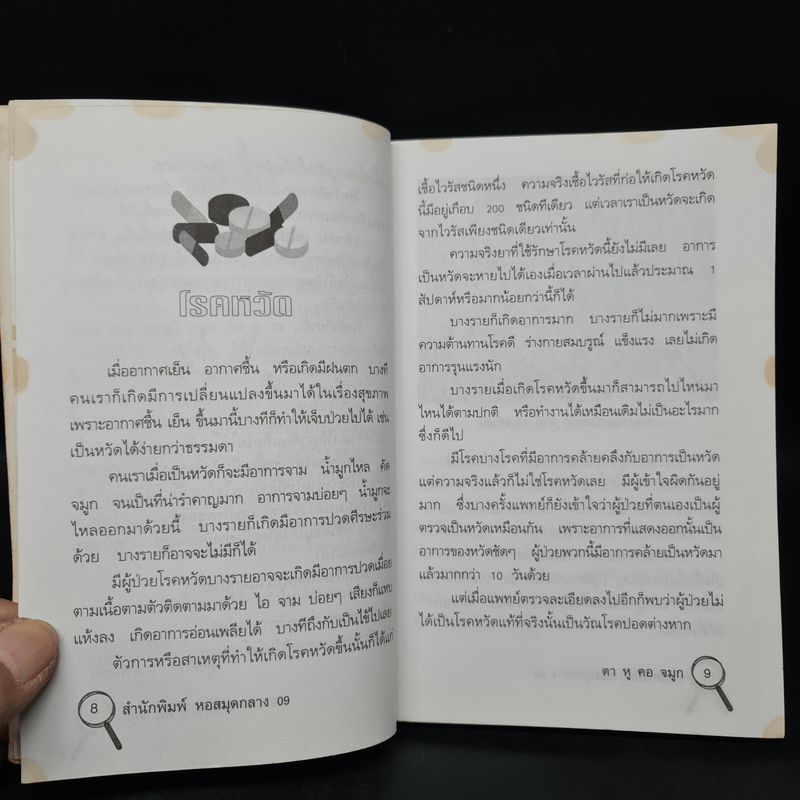 โรคหวัด
เมื่ออากาศเย็น อากาศชื้น หรือเกิดมีฝนตก บางที
คนเราก็เกิดมีการเปลี่ยนแปลงขึ้นมาได้ในเรื่องสุขภาพ
เพราะอากาศชื้น เย็น ขึ้นมานี้บางทีก็ทำให้เจ็บป่วยไปได้ เช่น
เป็นหวัดได้ง่ายกว่าธรรมดา
คนเราเมื่อเป็นหวัดก็จะมีอาการจาม น้ำมูกไหล คัด
จมูก จนเป็นที่น่ารำคาญมาก อาการจามบ่อยๆ น้ำมูกจะ
ไหลออกมาด้วยนี้ บางรายก็เกิดมีอาการปวดศีรษะร่วม
ด้วย บางรายก็อาจจะไม่มีก็ได้
มีผู้ป่วยโรคหวัดบางรายอาจจะเกิดมีอาการปวดเมื่อย
ตามเนื้อตามตัวติดตามมาด้วย ไอ จาม บ่อยๆ เสียงก็แหบ
แห้งลง เกิดอาการอ่อนเพลียได้ บางทีถึงกับเป็นไข้ไปเลย
ตัวการหรือสาเหตุที่ทำให้เกิดโรคหวัดขึ้นนั้นก็ได้แก่
8 สำนักพิมพ์ หอสมุดกลาง 09
เชื้อไวรัสชนิดหนึ่ง ความจริงเชื้อไวรัสที่ก่อให้เกิดโรคหวัด
นี้มีอยู่เกือบ 200 ชนิดทีเดียว แต่เวลาเราเป็นหวัดจะเกิด
จากไวรัสเพียงชนิดเดียวเท่านั้น
ความจริงยาที่ใช้รักษาโรคหวัดนี้ยังไม่มีเลย อาการ
เป็นหวัดจะหายไปได้เองเมื่อเวลาผ่านไปแล้วประมาณ 1
สัปดาห์หรือมากน้อยกว่านี้ก็ได้
บางรายก็เกิดอาการมาก บางรายก็ไม่มากเพราะมี
ความต้านทานโรคดี ร่างกายสมบรูณ์ แข็งแรง เลยไม่เกิด
อาการรุนแรงนัก
บางรายเมื่อเกิดโรคหวัดขึ้นมาก็สามารถไปไหนมา
ไหนได้ตามปกติ หรือทำงานได้เหมือนเดิมไม่เป็นอะไรมาก
ซึ่งก็ดีไป
มีโรคบางโรคที่มีอาการคล้ายคลึงกับอาการเป็นหวัด
แต่ความจริงแล้วก็ไม่ใช่โรคหวัดเลย มีผู้เข้าใจผิดกันอยู่
มาก ซึ่งบางครั้งแพทย์ก็ยังเข้าใจว่าผู้ป่วยที่ตนเองเป็นผู้
ตรวจเป็นหวัดเหมือนกัน เพราะอาการที่แสดงออกนั้นเป็น
อาการของหวัดชัดๆ ผู้ป่วยพวกนี้มีอาการคล้ายเป็นหวัดมา
แล้วมากกว่า 10 วันด้วย
แต่เมื่อแพทย์ตรวจละเอียดลงไปอีกก็พบว่าผู้ป่วยไม่
ได้เป็นโรคหวัดแท้ที่จริงนั้นเป็นวัณโรคปอดต่างหาก
ตา หู คอ จมูก 9